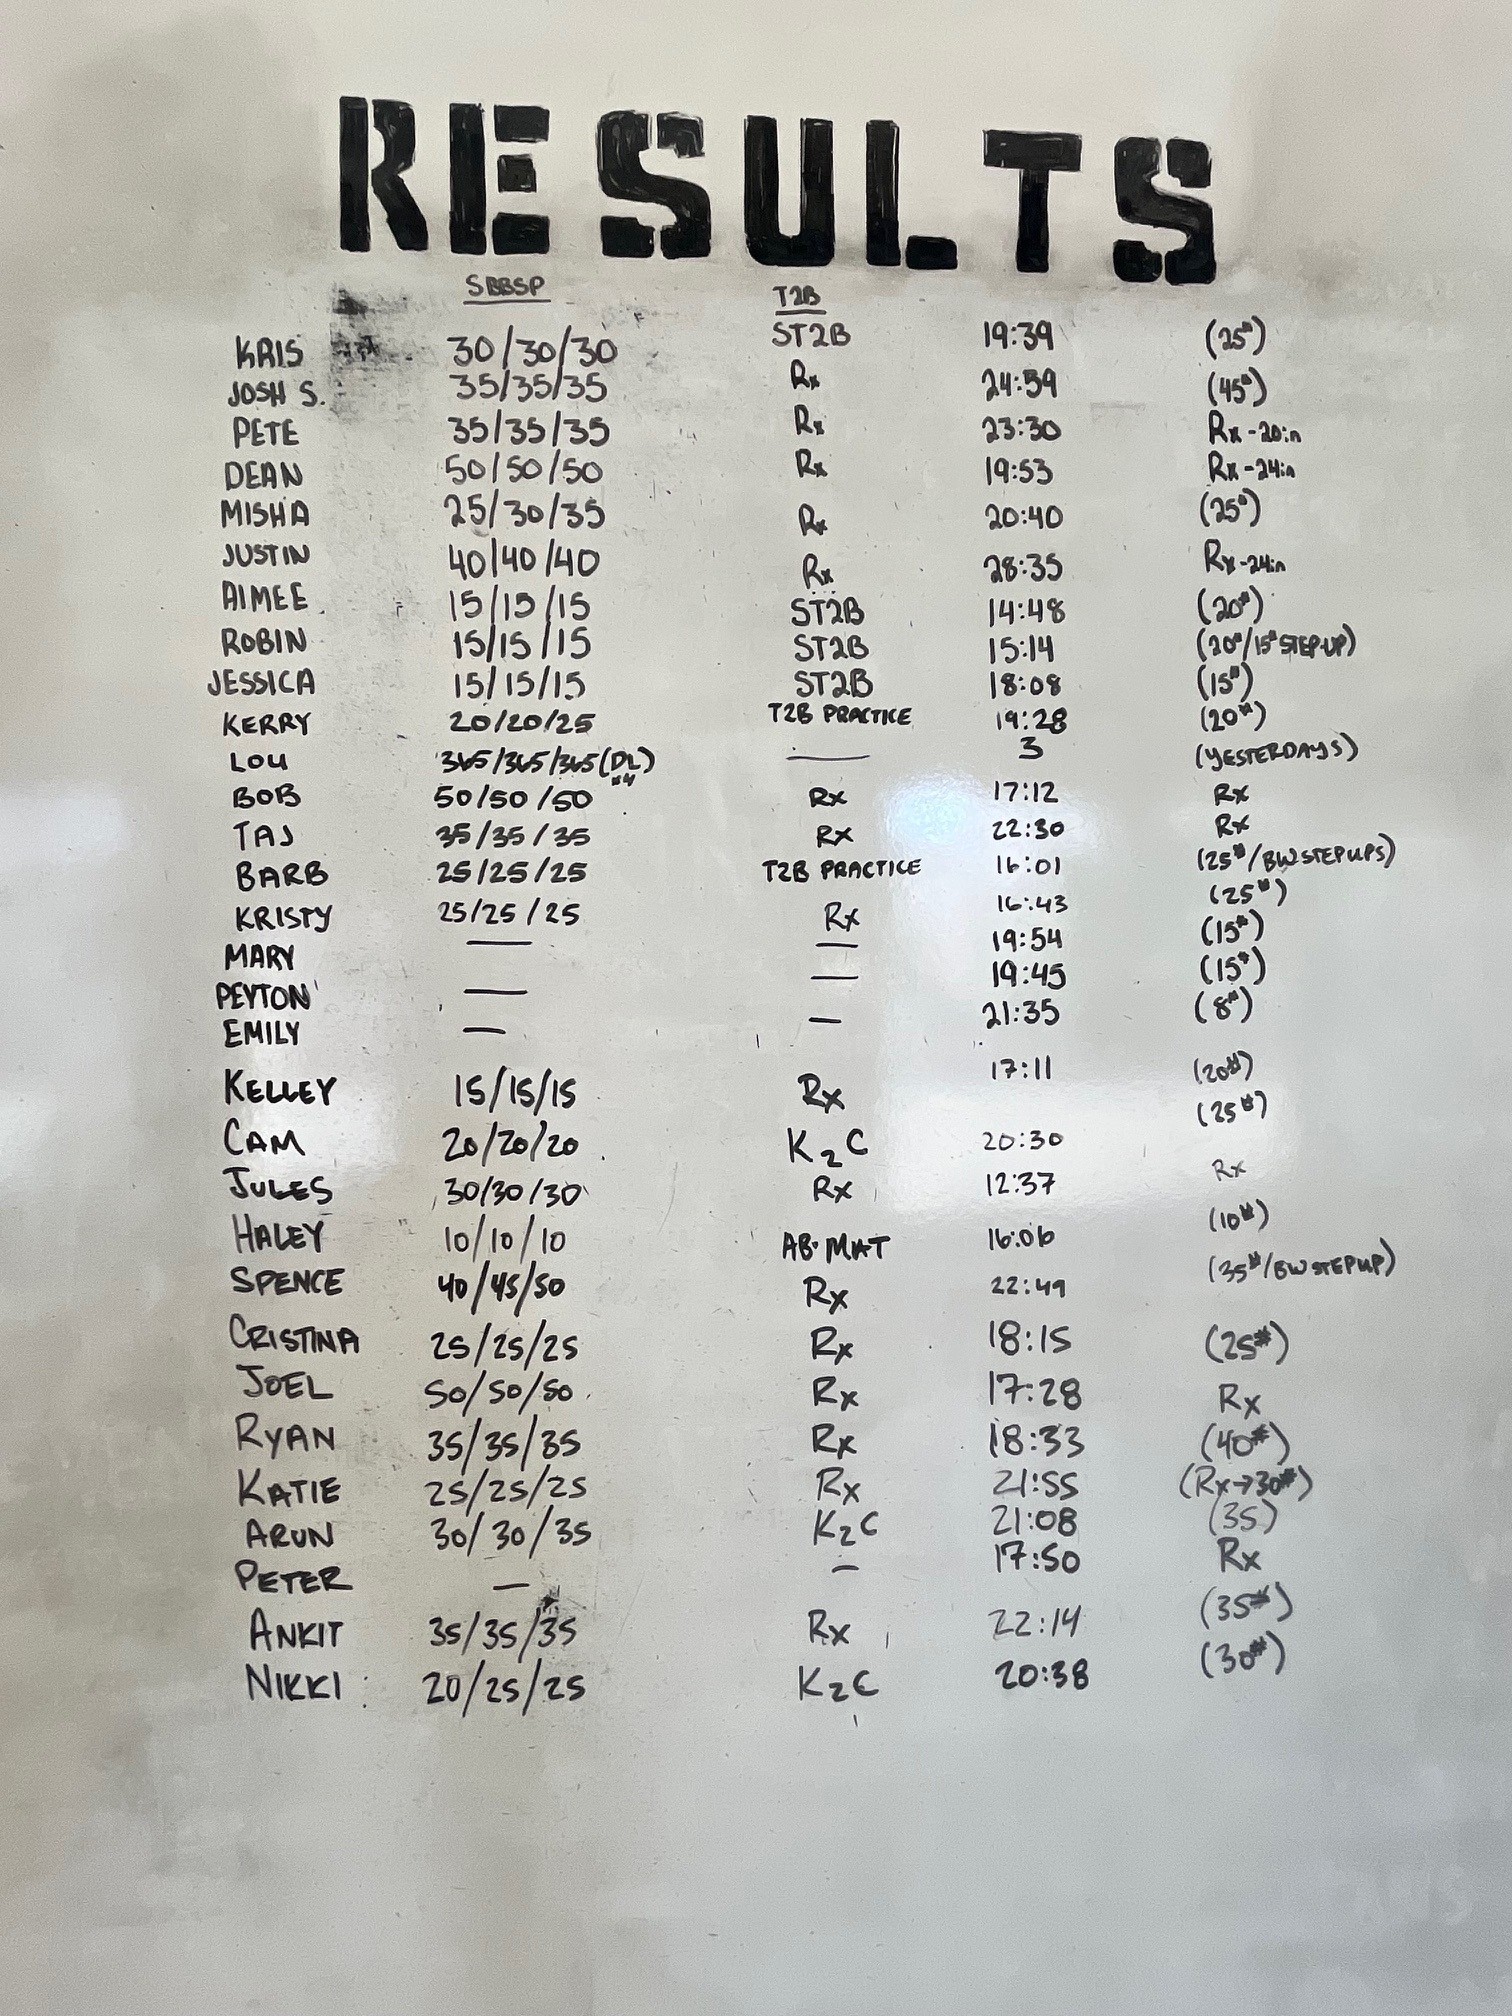 RESULTS
SBBSP T2B
KRIS 30/30/30 ST2B 19:39 (25#)
JOSH S. 35/35/35 Rx 24:59 (45#)
PETE 35/35/35 Rx 23:30 Rx-20in
DEAN 50/50/50 Rx 19:53 Rx-24in
MISHA 25/30/35 Rx 20:40 (25#)
JUSTIN 40/40/40 Rx 28:35 Rx-24in
AIMEE 15/15/15 ST2B 14:48 (20#)
ROBIN 15/15/15 ST2B 15:14 (20#/15# STEP-UP)
JESSICA 15/15/15 ST2B 18:08 (15#)
KERRY 20/20/25 T2B PRACTICE 19:28 (20#)
LOU 365/365/365(DL) — 3 (YESTERDAYS)
BOB 50/50/50 Rx 17:12 Rx
TAJ 35/35/35 Rx 22:30 Rx
BARB 25/25/25 T2B PRACTICE 16:01 (25#/BW STEPUPS)
KRISTY 25/25/25 Rx 16:43 (25#)
MARY — — 19:54 (15#)
PEYTON — — 19:45 (15#)
EMILY — — 21:35 (8#)
KELLEY 15/15/15 Rx 17:11 (20#)
CAM 20/20/20 K2C 20:30 (25#)
JULES 30/30/30 Rx 12:37 Rx
HALEY 10/10/10 AB-MAT 16:06 (10#)
SPENCE 40/45/50 Rx 22:49 (35#/BW STEPUP)
CRISTINA 25/25/25 Rx 18:15 (25#)
JOEL 50/50/50 Rx 17:28 Rx
RYAN 35/35/35 Rx 18:33 (40#)
KATIE 25/25/25 Rx 21:55 (Rx→30#)
ARUN 30/30/35 K2C 21:08 (35)
PETER — — 17:50 Rx
ANKIT 35/35/35 Rx 22:14 (35#)
NIKKI 20/25/25 K2C 20:38 (30#)